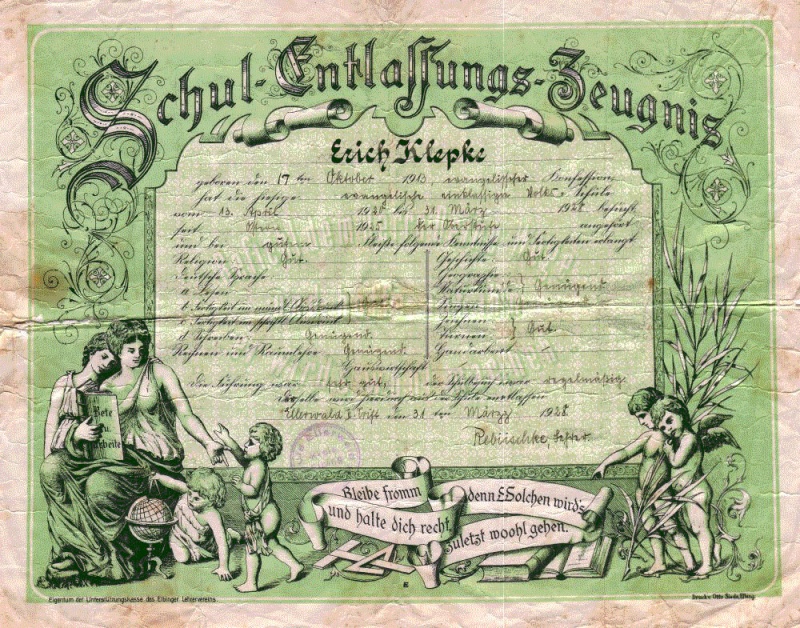 Schul-Entlassungs-Zeugnis
Erich Klepke
geboren den 17 ten Oktober 1913, evangelischer Konfession
hat die hiesige evangelische einklassige Volks-Schule
vom 13. April 1920 bis 31. März 1928 besucht
seit Ostern 1925 der Oberstufe angehört
und bei gutem Fleiße folgende Kenntnisse und Fertigkeiten erlangt
Religion Gut. Geschichte Gut.
Deutsche Sprache Geographie
a. Lesen Naturkunde } Genügend
b. Fertigkeit im mündl. Ausdruck Singen Genügend
c. Fertigkeit im schriftl. Ausdruck Zeichnen
d. Schreiben Genügend. Turnen } Gut.
Rechnen und Raumlehre Genügend. Handarbeit –
Hauswirtschaft
Die Führung war sehr gut, der Schulbesuch war regelmäßig.
Ellerwald 5. Trift den 31 ten März 1928
Lehrer.
Bete
u.
Arbeite
Bleibe fromm
und halte dich recht,
denn Solchen wird's
zuletzt woohl gehen.
Eigentum der Unterstützungskasse des Elbinger Lehrervereins
Druck v. Otto Siede, Elbing